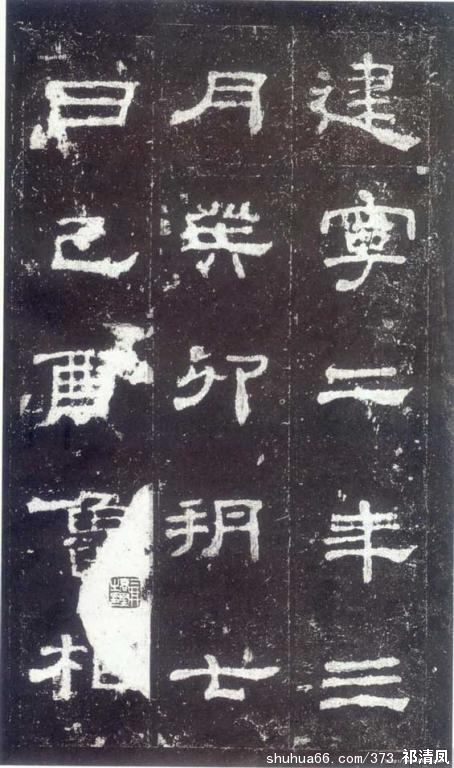 建寧二年三
月癸卯朔七
日己酉魯相
shuhua66.com/373 祁清凤